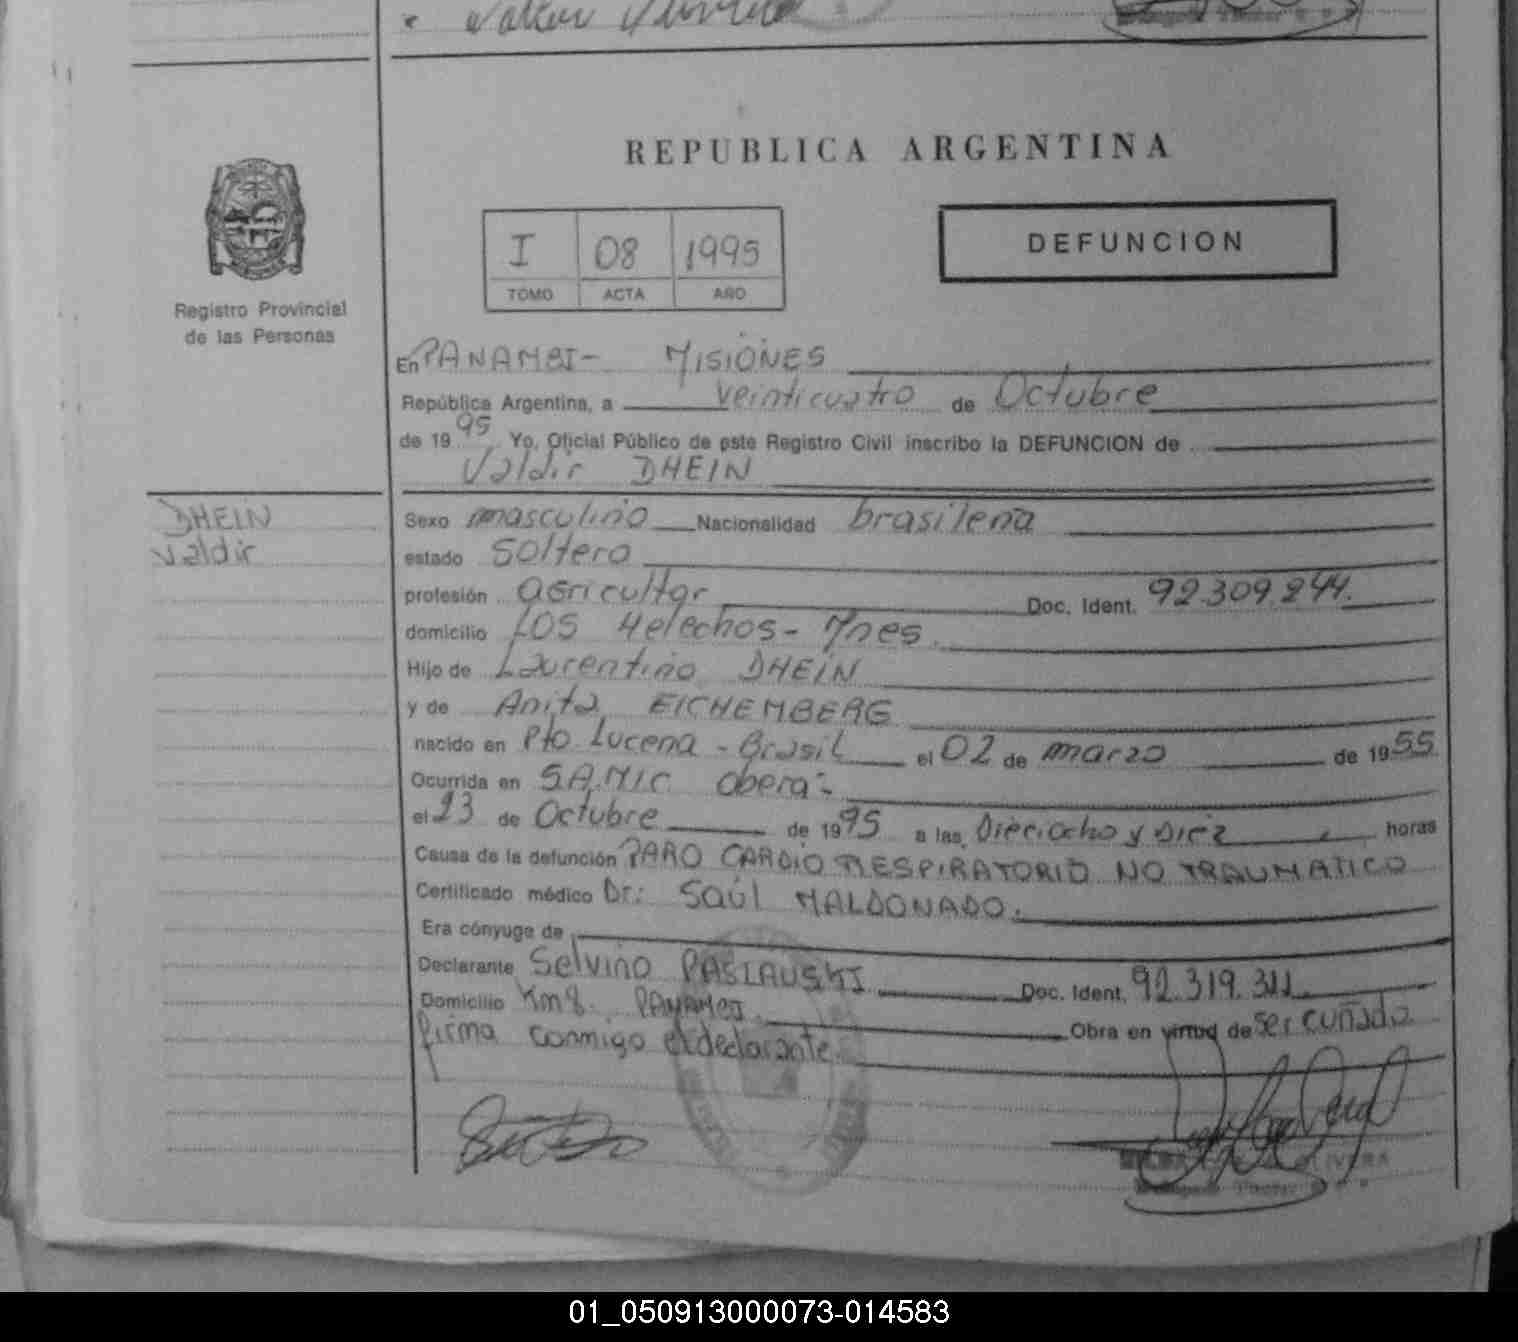 Walter
REPUBLICA ARGENTINA
I 08 1995
TOMO ACTA AÑO
DEFUNCION
Registro Provincial
de las Personas
En PANAMBI- MISIONES
República Argentina, a veinticuatro de Octubre
de 19 95 Yo, Oficial Público de este Registro Civil inscribo la DEFUNCION de
Valdir DHEIN
DHEIN
Valdir
Sexo masculino Nacionalidad brasileña
estado soltero
profesión agricultor Doc. Ident. 92.309.244.
domicilio Los Helechos- Mnes.
Hijo de Laurentino DHEIN
y de Anita EICHEMBERG
nacido en Pto. Lucena - Brasil el 02 de marzo de 1955
Ocurrida en S.A.MIC Obera-
el 23 de Octubre de 1995 a las Dieciocho y Diez horas
Causa de la defunción PARO CARDIO RESPIRATORIO NO TRAUMATICO
Certificado médico Dr: Saúl MALDONADO.
Era cónyuge de
Declarante Selvino PASLAUSKI Doc. Ident. 92.319.311
Domicilio Km 8. PANAMBI Obra en virtud de ser cuñado
firma conmigo el declarante.
01_050913000073-014583